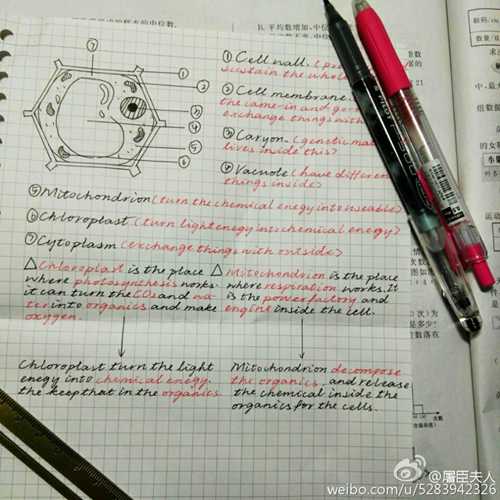 ⑦
①
②
③
④
⑤
⑥
① Cell wall. (
sustain the whole
② Cell membrane.
the came-in and go-
exchange things with
③ Caryon. (genetic ma
lives inside this)
④ Vacuole (have differen
things inside)
⑤ Mitochondrion (turn the chemical enegy into useable)
⑥ Chloroplast (turn light enegy into chemical enegy)
⑦ Cytoplasm (exchange things with outside)
△ Chloroplast is the place
where photosynthesis works.
it can turn the CO₂ and wa-
ter into organics and make
oxygen.
△ Mitochondrion is the place
where respiration works. It
is the power factory and
engine inside the cell.
Chloroplast turn the light
enegy into chemical enegy.
the keep that in the organics
Mitochondrion decompose
the organics and release
the chemical inside the
organics for the cells.
B. 平均数增加,中位
@屠臣夫人
weibo.com/u/5283942326